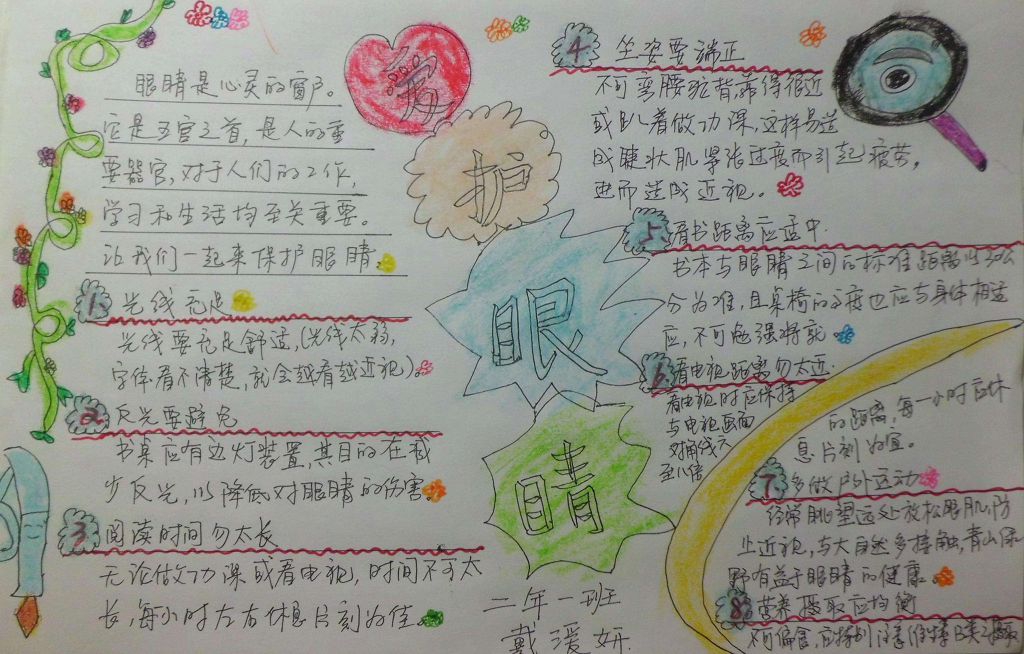 眼睛是心灵的窗户。
它是五官之首，是人的重
要器官，对于人们的工作，
学习和生活均至关重要。
让我们一起来保护眼睛。
1、光线充足
光线要充足舒适，(光线太弱，
字体看不清楚，就会越看越近视)。
2、反光要避免
书桌应有边灯装置，其目的在减
少反光，以降低对眼睛的伤害。
3、阅读时间勿太长
无论做功课或看电视，时间不可太
长，每小时左右休息片刻为佳。
爱
护
眼
睛
二年一班
戴湲妍
4、坐姿要端正
不可弯腰驼背靠得很近
或趴着做功课，这样易造
成睫状肌紧张过度而引起疲劳，
进而造成近视。
5、看书距离应适中
书本与眼睛之间的标准距离以30公
分为准，且桌椅的高度也应与身体相适
应，不可勉强将就
6、看电视距离勿太近
看电视时应保持
与电视画面
对角线六
至八倍
的距离，每一小时应休
息片刻为宜。
7、多做户外运动
经常眺望远处放松眼肌，防
止近视，与大自然多接触，青山绿
野有益于眼睛的健康。
8、营养摄取应均衡
不可偏食，应特别注意维